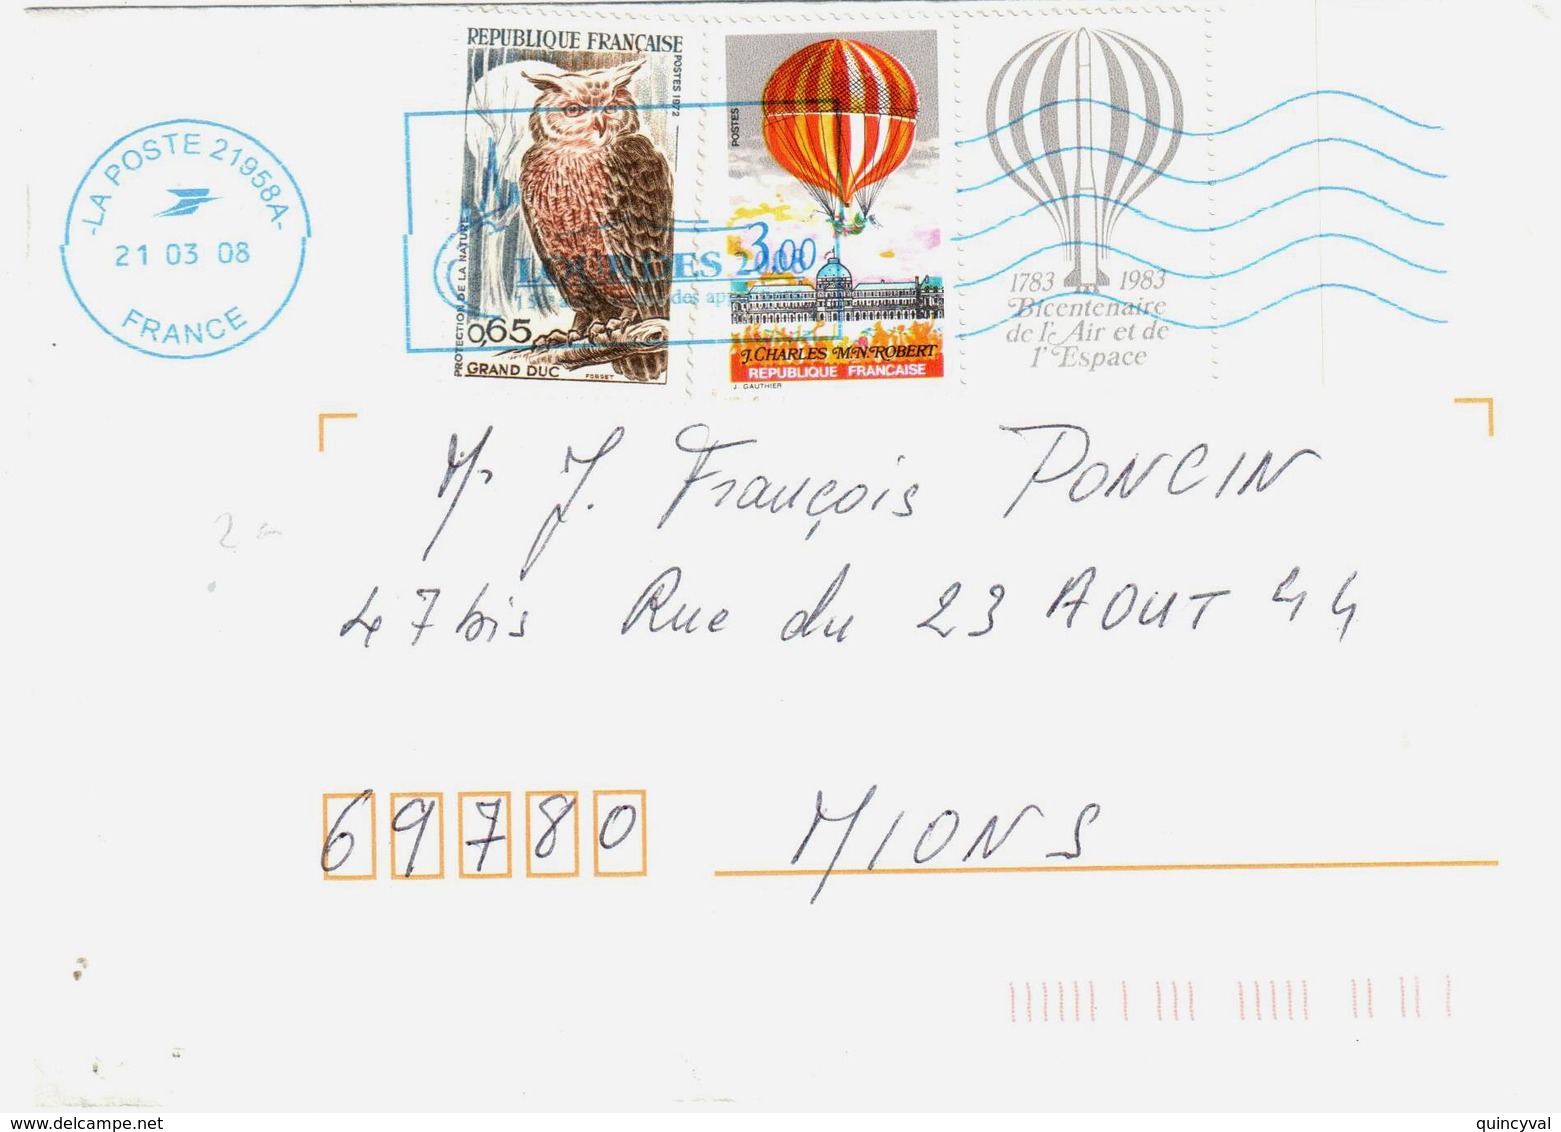 RÉPUBLIQUE FRANÇAISE
POSTES 1972
PROTECTION DE LA NATURE
0,65
GRAND DUC
FORGET
POSTES
3,00
J.CHARLES M.N.ROBERT
RÉPUBLIQUE FRANÇAISE
J. GAUTHIER
1783 1983
Bicentenaire
de l'Air et de
l'Espace
-LA POSTE 21958A-
21 03 08
FRANCE
LOURDES 2008
des
Mr J. François PONCIN
47 bis Rue du 23 AOUT 44
69780 MIONS
delcampe.net
quincyval